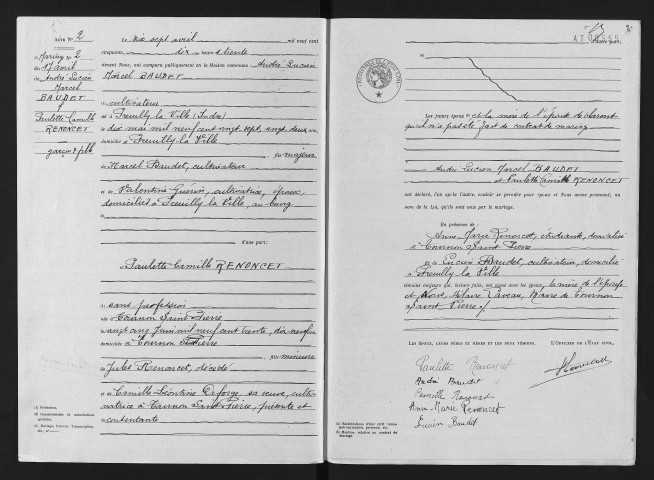 Acte N° 2
Mariage N° 2
du
17 avril
André Lucien
Marcel
BAUDET
&
Paulette Camille
RENONCET
Le dix sept avril mil neuf cent
cinquante, dix heures trente
devant Nous, ont comparu publiquement en la Maison commune : André Lucien
Marcel BAUDET
cultivateur
né à Preuilly la Ville (Indre)
le dix mai mil neuf cent vingt sept, vingt deux ans
domicilié à Preuilly la Ville
fils majeur
de Marcel Baudet, cultivateur
et de Valentine Guérin, cultivatrice, époux
domiciliés à Preuilly la Ville, au bourg
d'une part;
Paulette Camille RENONCET
sans profession
née à Tournon Saint Pierre
le vingt cinq juin mil neuf cent trente, dix-neuf ans
domiciliée à Tournon St Pierre
fille mineure
de Jules Renoncet, décédé
et de Camille Léontine Deforge sa veuve, culti-
vatrice à Tournon Saint Pierre, présente et
consentante
(1) Profession.
d'autre part;
Les futurs époux et la mère de l'épouse déclarent
qu'il n'a pas été fait de contrat de mariage
André Lucien Marcel BAUDET
et Paulette Camille RENONCET
ont déclaré, l'un après l'autre, vouloir se prendre pour époux et Nous avons prononcé, au
nom de la Loi, qu'ils sont unis par le mariage.
En présence de :
Anne Marie Renoncet, étudiante, domiciliée
à Tournon Saint Pierre
et de Lucien Baudet, cultivateur, domicilié
à Preuilly la Ville
témoins majeurs qui, lecture faite, ont signé avec les époux, la mère de l'épouse
et Nous, Maire de Tournon
Saint Pierre
Les époux, leurs pères et mères et les deux témoins. L'Officier de l'État civil,
Paulette Renoncet
André Baudet
Camille Renoncet
Anne-Marie Renoncet
Lucien Baudet